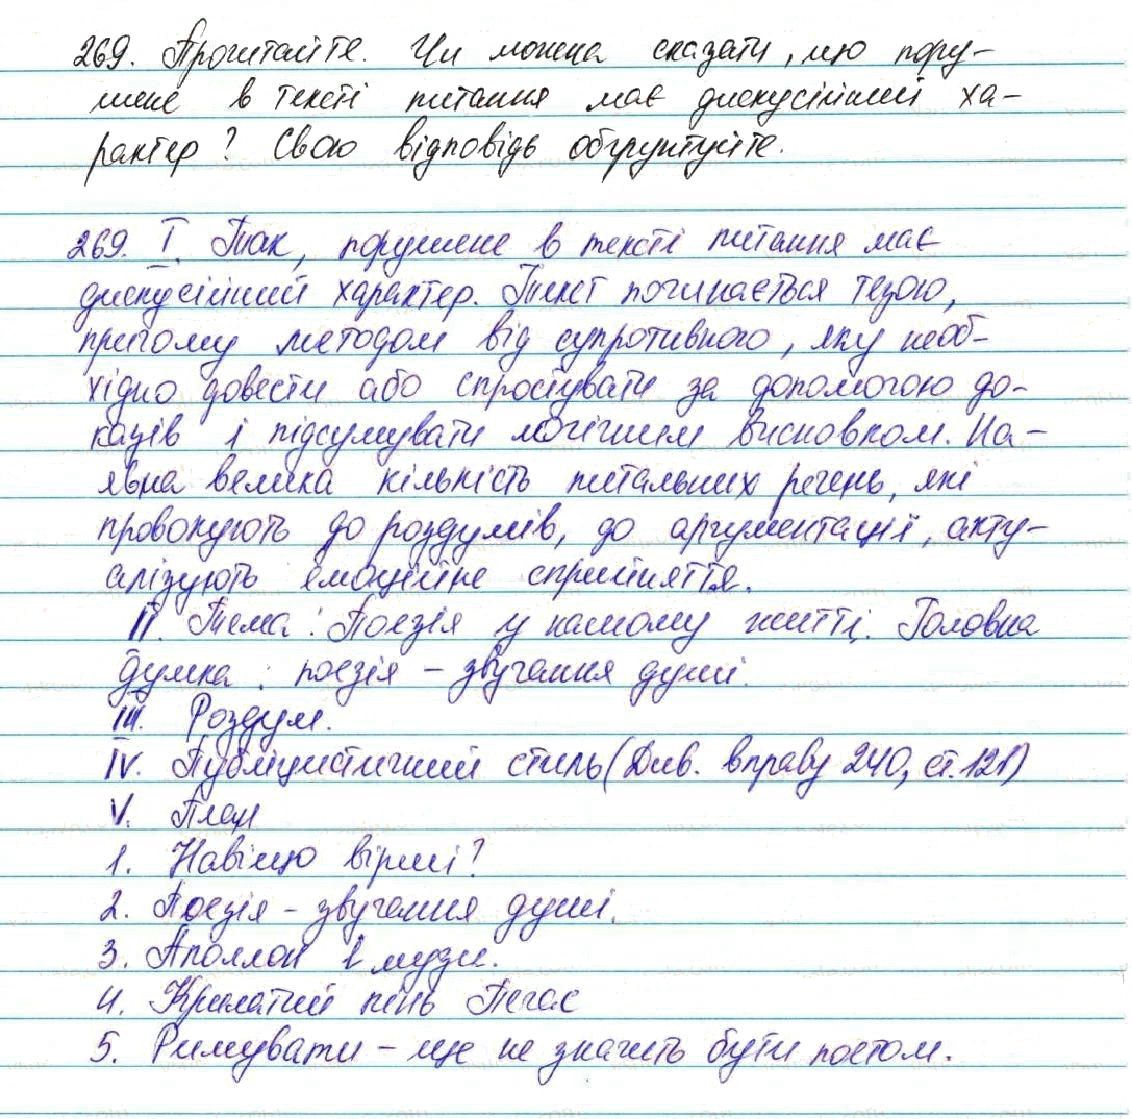 269. Прочитайте. Чи можна сказати, що пору-
шене в тексті питання має дискусійний ха-
рактер? Свою відповідь обґрунтуйте.
269. I. Так, порушене в тексті питання має
дискусійний характер. Текст починається тезою,
причому методом від супротивного, яку необ-
хідно довести або спростувати за допомогою до-
казів і підсумувати логічним висновком. На-
явна велика кількість питальних речень, які
провокують до роздумів, до аргументації, акту-
алізують емоційне сприйняття.
II. Тема: Поезія у нашому житті. Головна
думка: поезія – звучання душі.
III. Роздум.
IV. Публіцистичний стиль (Див. вправу 240, ст. 121)
V. План
1. Навіщо вірші?
2. Поезія – звучання душі.
3. Аполлон і музи.
4. Крилатий кінь Пегас
5. Римувати – ще не значить бути поетом.